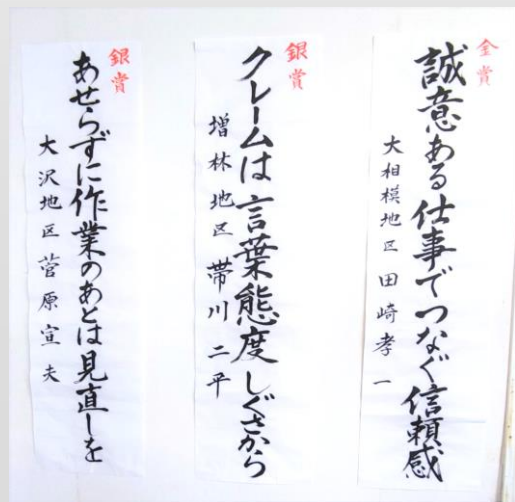 金賞
誠意ある仕事でつなぐ信頼感
大相模地区 田崎孝一
銀賞
クレームは言葉態度しぐさから
増林地区 帯川二平
銀賞
あせらずに作業のあとは見直しを
大沢地区 菅原宣夫